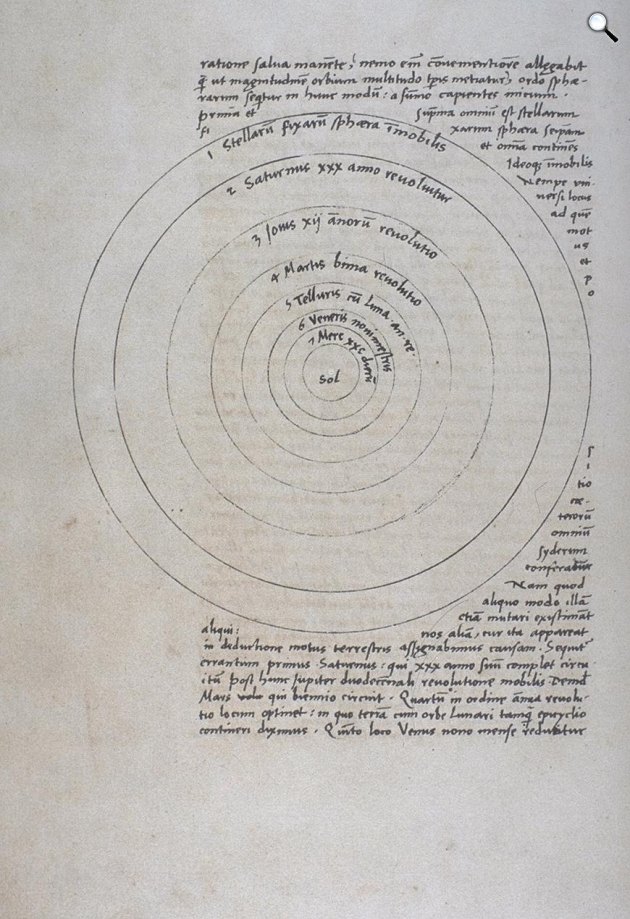 ratione salua manēte, nemo em̄ cōuenientiorē allegabit
q̄ ut magnitudinē orbium multitudo tp̄is metiatur, ordo sphæ-
rarum seqtur in hunc modū: a sūmo capientes initium.
prima et suprema omniū est stellarum
fi xarum sphæra seipsam
et omnia continēs
Ideoq; īmobilis
Nempe uni-
uersi locus
ad quē
mot
us
et
p
o
1 Stellarū fixarū sphæra īmobilis
2 Saturnus xxx anno reuoluitur
3 Iouis xij añorū reuolutio
4 Martis bima reuolutio
5 Telluris cū luna · an · re ·
6 Veneris nonimestris
7 Merc xxc dierū
Sol
ſ
i
tio
cæ-
terorū
omniū
syderum
conferatur
Nam quod
aliquo modo illā
etiā mutari existimāt
aliqui: nos aliā, cur ita appareat
in deductione motus terrestris assignabimus causam. Sequit᷑
errantium primus Saturnus: qui xxx anno suū complet circu-
itū post hunc Iupiter duodecennali reuolutione mobilis Demū
Mars uolu qui biennio circuit. Quartū in ordine annua reuolu-
tio locum optinet: in quo terrā cum orbe lunari tamq̄ epicyclio
contineri diximus. Quinto loco Venus nono mense reducitur